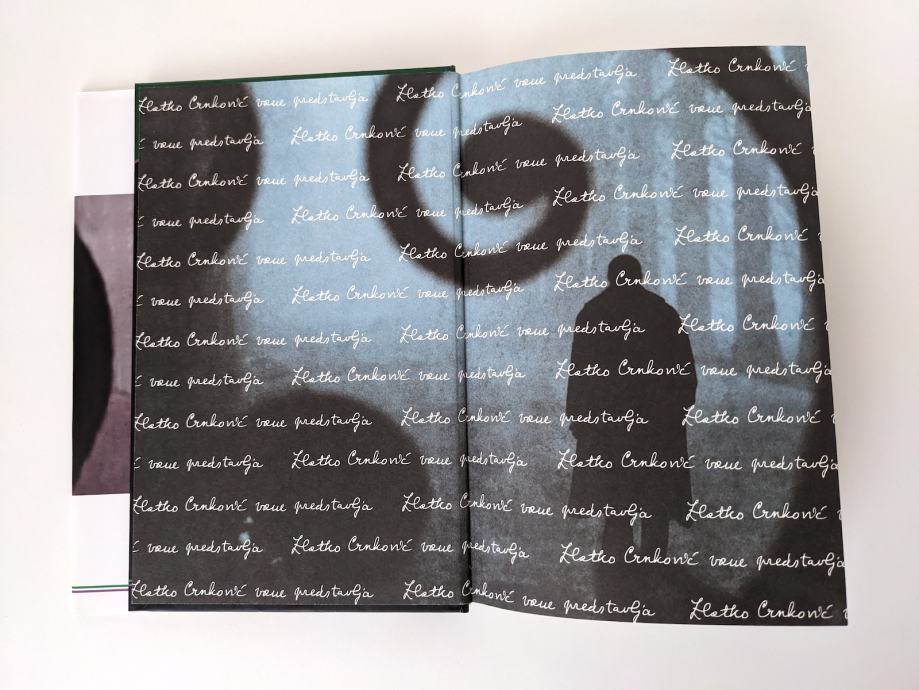 Zlatko Crnković vam predstavlja Zlatko Crnković vam predstavlja Zlatko Crnković
vam predstavlja Zlatko Crnković vam predstavlja Zlatko Crnković vam predstavlja
Zlatko Crnković vam predstavlja Zlatko Crnković vam predstavlja Zlatko Crnković
vam predstavlja Zlatko Crnković vam predstavlja Zlatko Crnković vam predstavlja
Zlatko Crnković vam predstavlja Zlatko Crnković vam predstavlja Zlatko Crnković
vam predstavlja Zlatko Crnković vam predstavlja Zlatko Crnković vam predstavlja
Zlatko Crnković vam predstavlja Zlatko Crnković vam predstavlja Zlatko Crnković
vam predstavlja Zlatko Crnković vam predstavlja Zlatko Crnković vam predstavlja
Zlatko Crnković vam predstavlja Zlatko Crnković vam predstavlja Zlatko Crnković
vam predstavlja Zlatko Crnković vam predstavlja Zlatko Crnković vam predstavlja
Zlatko Crnković vam predstavlja Zlatko Crnković vam predstavlja Zlatko Crnković
vam predstavlja Zlatko Crnković vam predstavlja Zlatko Crnković vam predstavlja
Zlatko Crnković vam predstavlja Zlatko Crnković vam predstavlja Zlatko Crnković